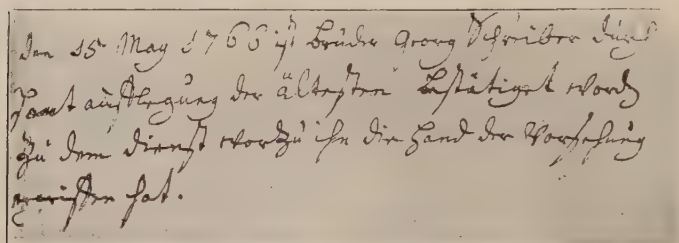 den 15 May 1766 ist bruder Georg Schreiber durch
Hant aufflegung der ältesten bestätiget worden
zu dem dienst worzu ihn die Hand der Vorsehung
gerissen hat.